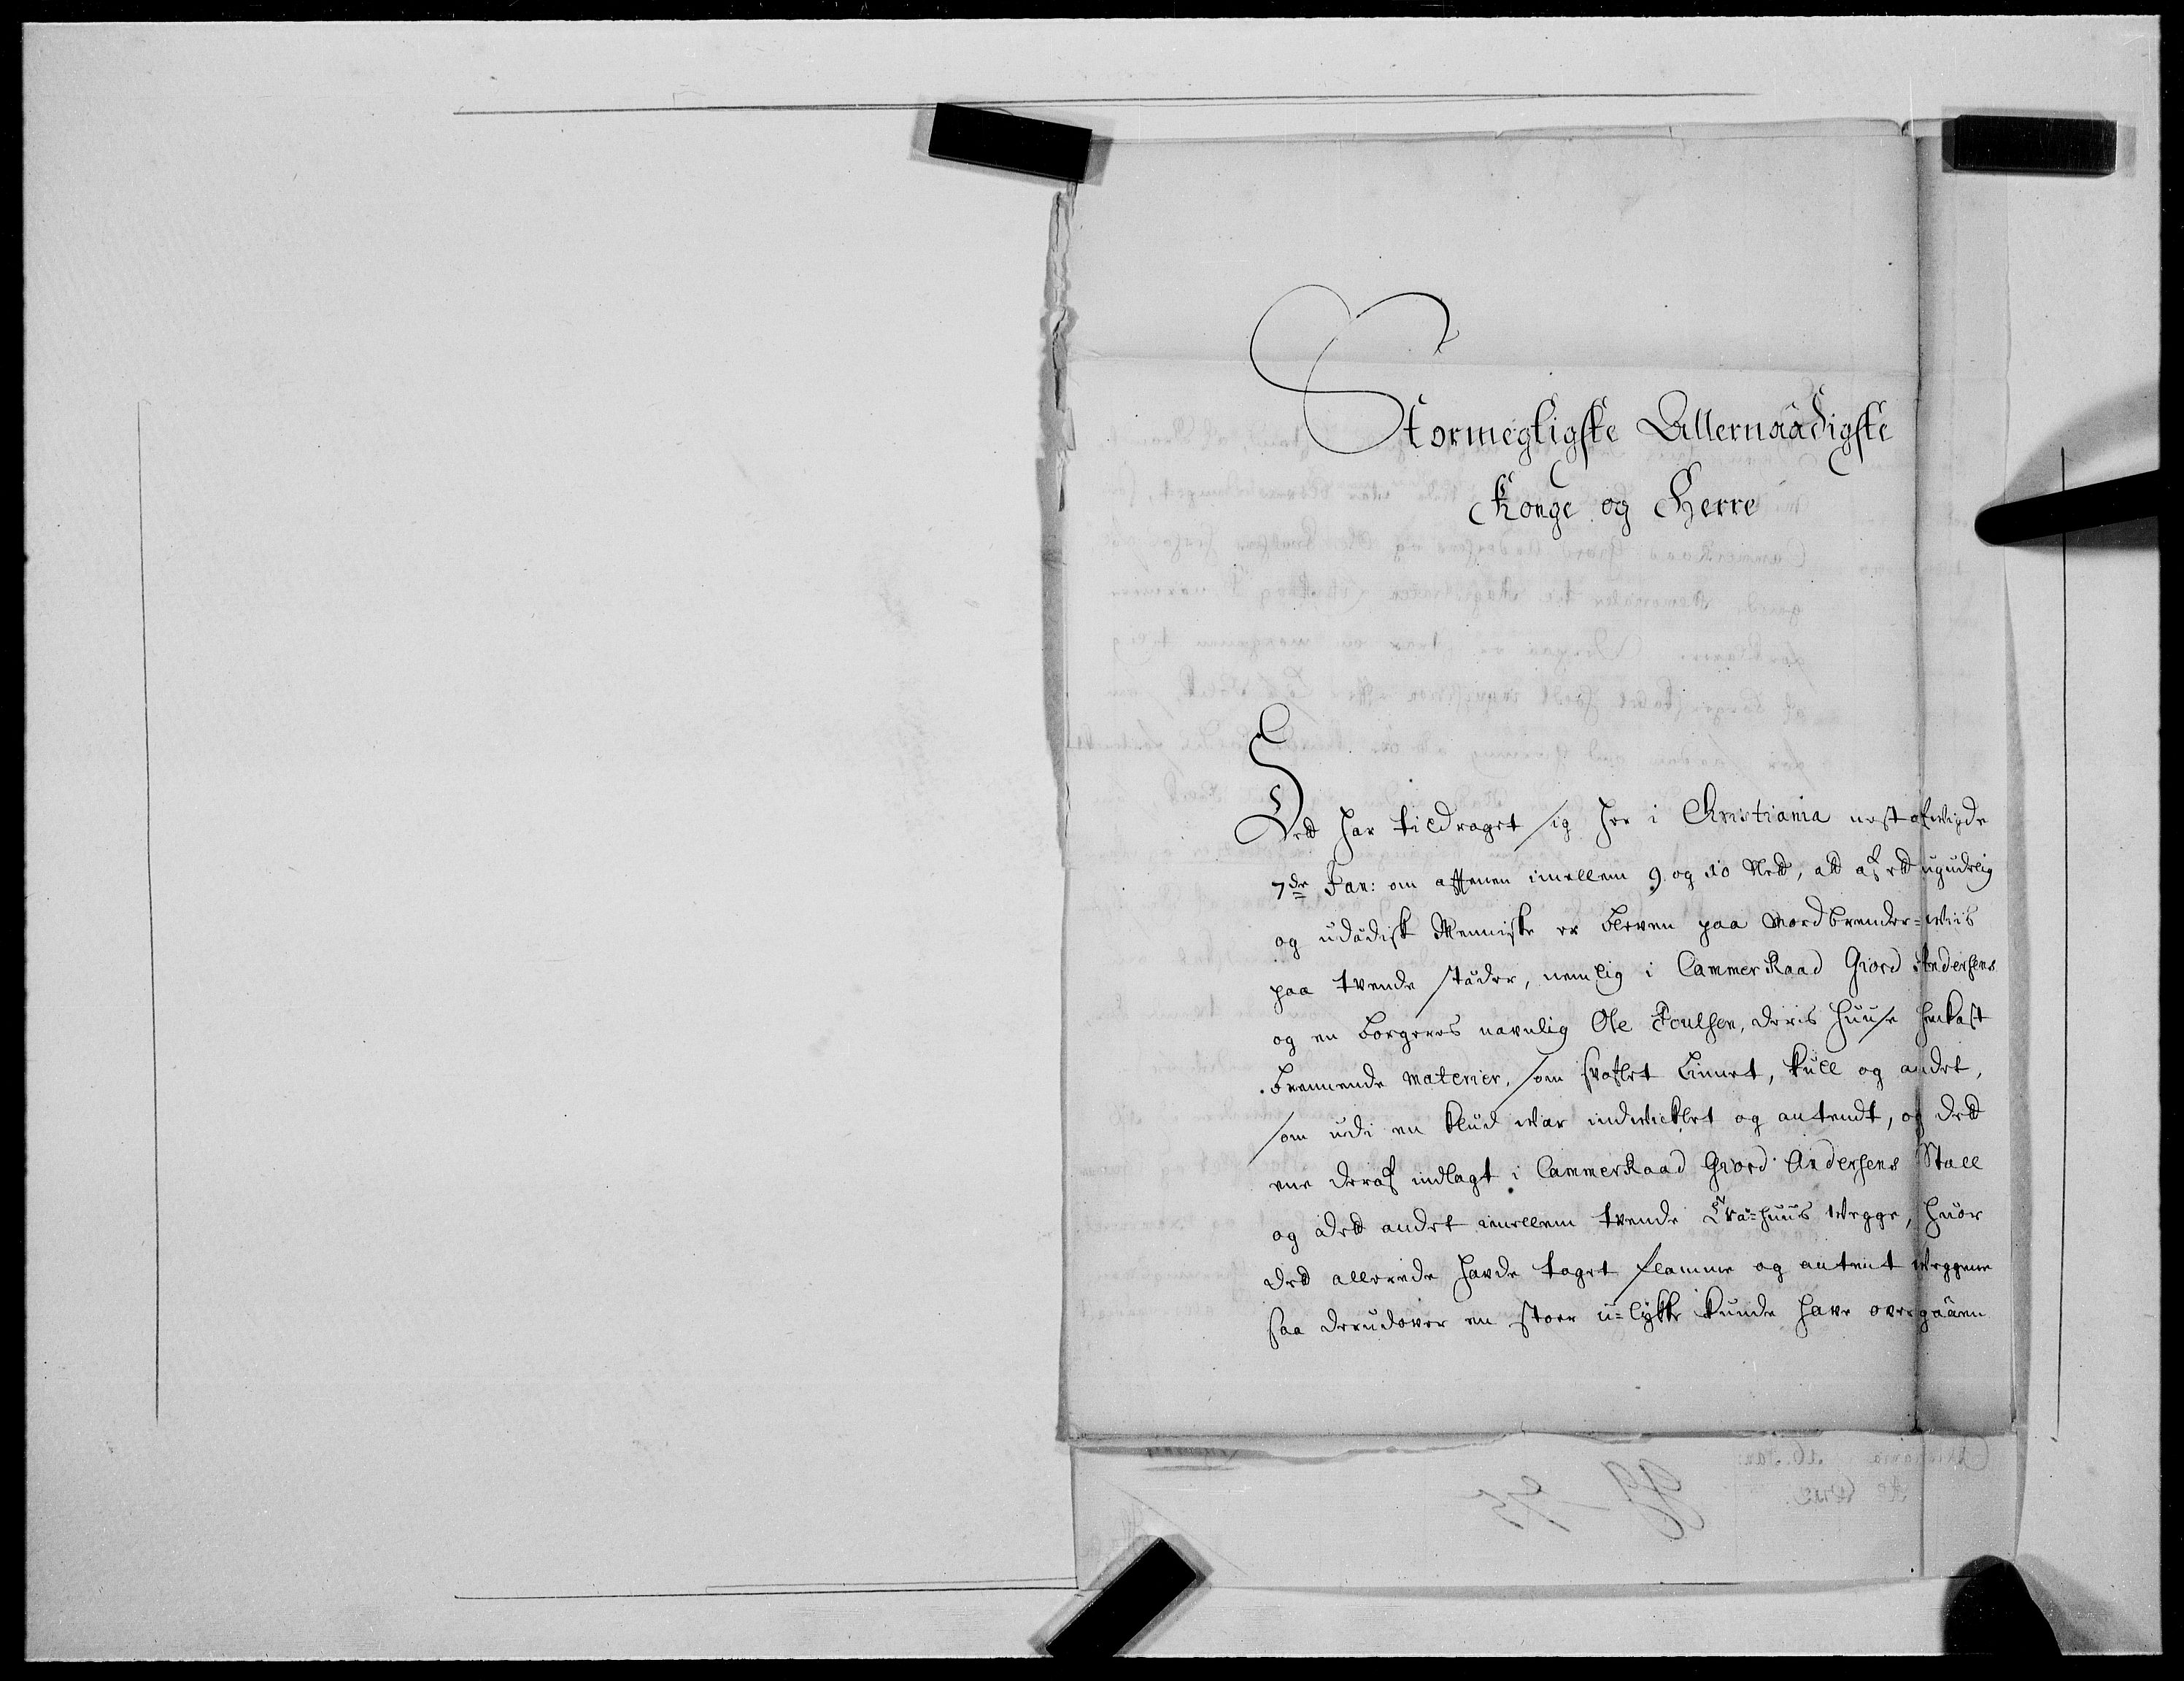 Stormegtigste Allernaadigste
Konge og Herre
Det har tildraget sig her i Christiania nest afvigde
7de Jan: om afftenen imellem 9 og 10 Slet, at af et ugudelig
og udådisk Menniske er bleven paa Mordbrender-wiis
paa tvende stæder, nemlig i CammerRaad Giord Andersens
og en borgeres navnlig Ole Poulsen, deris huuse henkast
brennende materier, som svoflet Linnet, kull og andet,
som udi en klud war indwicklet og antendt, og det
ene deraf indlagt i CammerRaad Giord Andersens Stall
og det andet imellem tvende Træ-huus wegge, huor
det allerede havde taget flamme og antent weggene
saa derudover en stoer u-lykke kunde have overgaaen